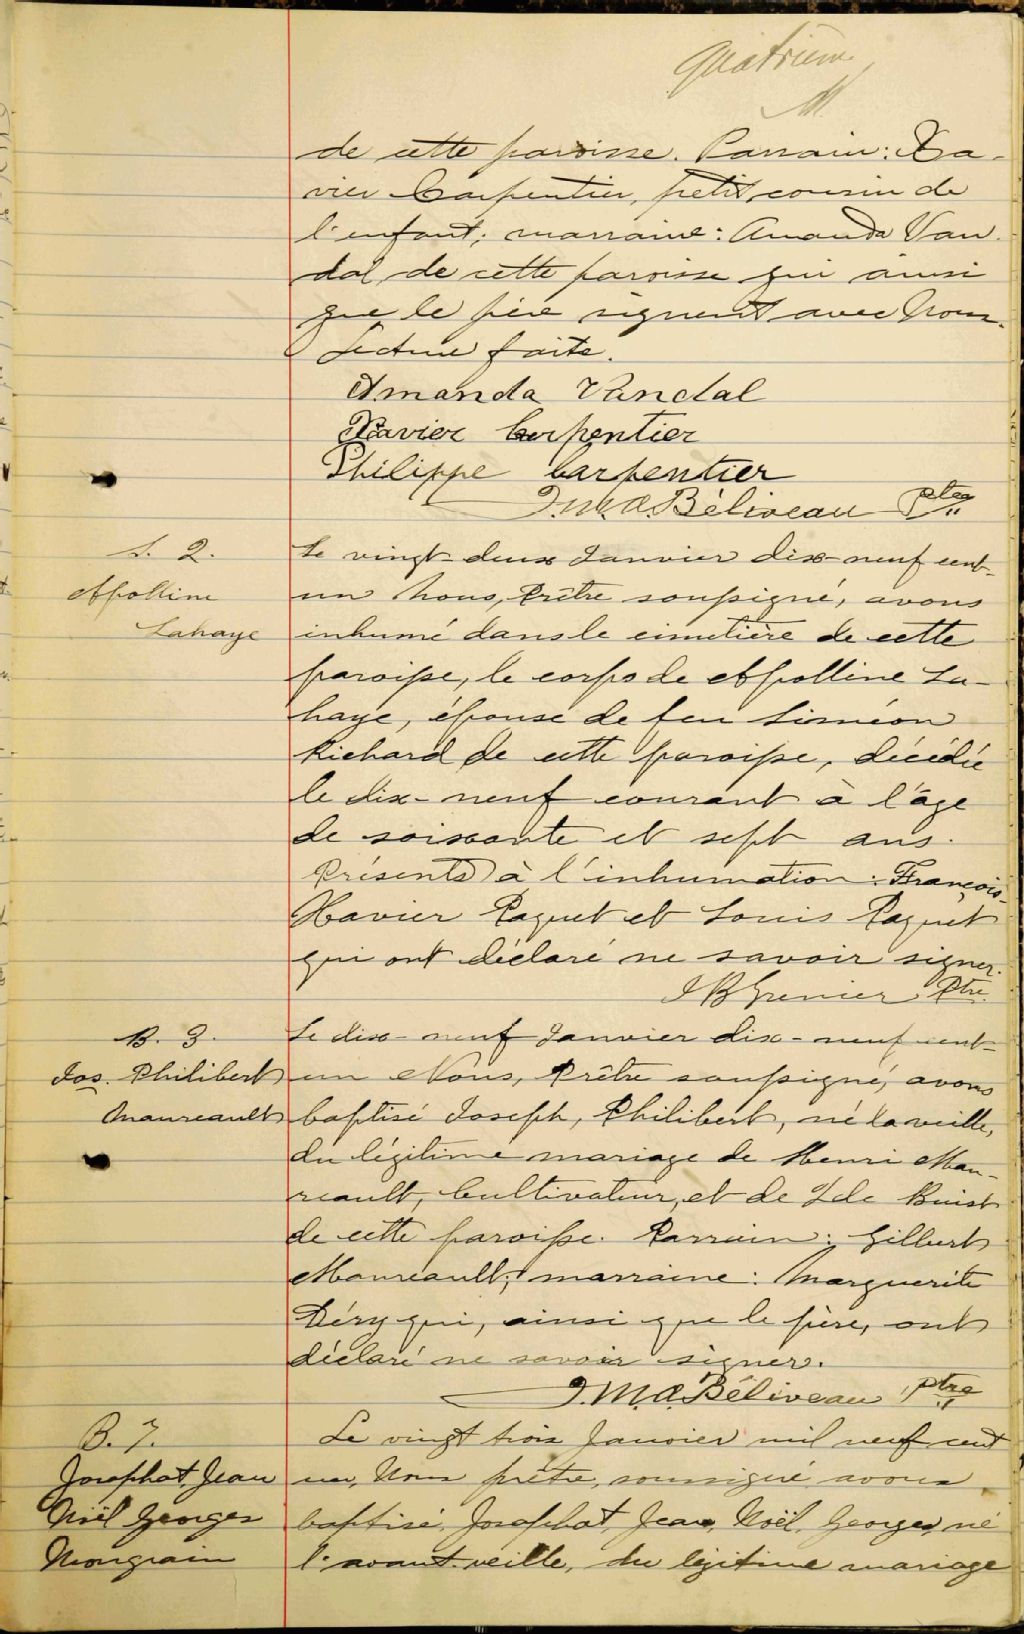 Quatrième
de cette paroisse. Parrain: Xa-
vier Carpentier, petit cousin de
l'enfant; marraine: Amanda Van-
dal de cette paroisse qui ainsi
que le père signent avec Nous.
Lecture faite.
Amanda Vandal
Xavier Carpentier
Philippe Carpentier
J.M.A. Béliveau Ptre
S. 2.
Appolline
Lahaye
Le vingt-deux Janvier dix-neuf cent-
un Nous, Prêtre soussigné, avons
inhumé dans le cimetière de cette
paroisse, le corps de Appolline La-
haye, épouse de feu Siméon
Richard de cette paroisse, décédée
le dix-neuf courant à l'âge
de soixante et sept ans.
Présents à l'inhumation: François-
Xavier Paquet et Louis Paquet
qui ont déclaré ne savoir signer.
J B Grenier Ptre.
B. 3.
Jos. Philibert
Maureault
Le dix-neuf Janvier dix-neuf cent-
un Nous, Prêtre soussigné, avons
baptisé Joseph, Philibert, né la veille,
du légitime mariage de Henri Mau-
reault, Cultivateur, et de
de cette paroisse. Parrain: Gilbert
Maureault; marraine: Marguerite
Déry qui, ainsi que le père, ont
déclaré ne savoir signer.
J.M.A. Béliveau, ptre
B.
Josaphat, Jean
Noël Georges
Mongrain
Le vingt trois Janvier mil neuf cent
un, Nous prêtre, soussigné avons
baptisé, Josaphat, Jean, Noël, Georges, né
l'avant-veille, du légitime mariage